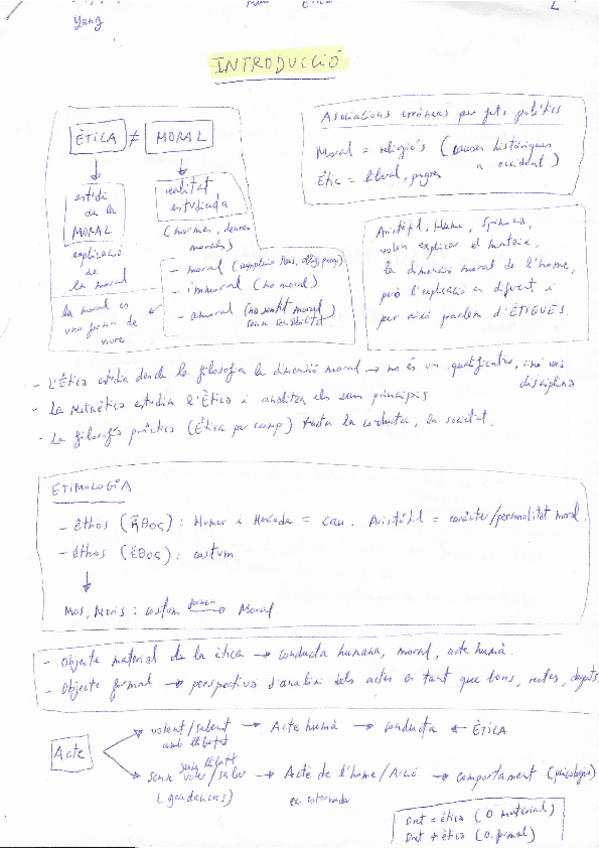 Yang
INTRODUCCIÓ
ÈTICA ≠ MORAL
estudi
de la
MORAL
explicació
de
la moral
la moral es
una forma de
viure
realitat
estudiada
(normes, deures
morals)
- moral
- immoral (no moral)
- amoral (no sentit moral)
sense sensibilitat
Asociacions errònees per fets polítics
Moral = religiós (causes històriques
a occident)
Ètic = liberal,
Aristòtil, Hume, Spinoza,
volen explicar el mateix,
la dimensió moral de l'home,
però l'explicació es diferent i
per això parlem d'ÈTIQUES.
- L'Ètica estudia desde la filosofia la dimensió moral → no és un qualificatiu, sinó una
disciplina
- La Metaètica estudia l'Ètica i analitza els seus principis
- La filosofía pràctica (Ètica per camp) tracta la conducta, la societat.
ETIMOLOGÍA
- Êthos (ἦθος): Homer i Hesíode = cau. Aristòtil = caràcter/personalitat moral.
- éthos (ἔθος): costum
Mos, Moris: costum → Moral
- Objecte material de la ètica → conducta humana, moral, acte humà.
- Objecte formal → perspectiva d'anàlisi dels actes en tant que bons, rectes,
Acte
volent/sabent → Acte humà → conducta ← ÈTICA
amb llibertat
sense llibertat
sense voler/saber → Acte de l'home/Acció → comportament (psicologia)
ex. estornudar
Dret = ètica (O. material)
Dret ≠ ètica (O. formal)